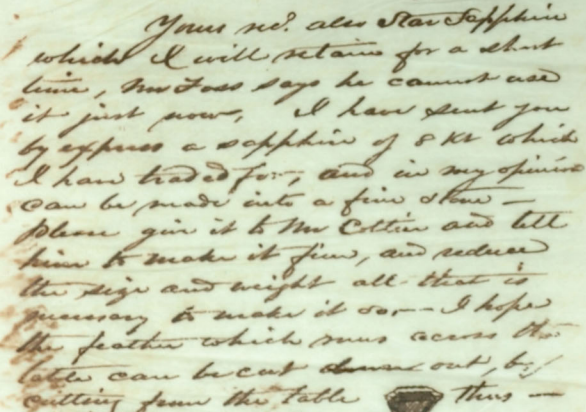 Yours recd. also Star Sapphire
which I will retain for a short
time, Mr Foss says he cannot use
it just now, I have sent you
by express a sapphire of 8 Kt which
I have traded for, and in my opinion
can be made into a fine stone —
please give it to Mr Cottier and tell
him to make it fine, and reduce
the size and weight all that is
necessary to make it so, — I hope
the feather which runs across the
table can be cut out, by
cutting from the table thus —